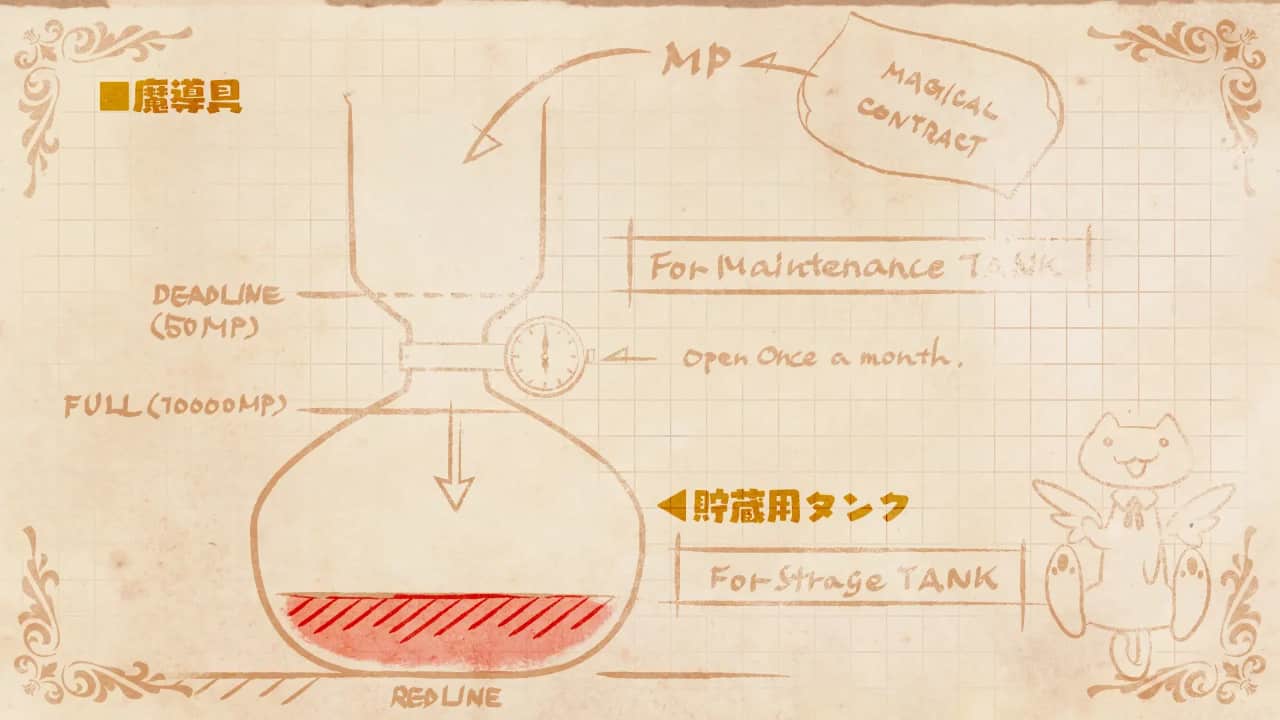 ■魔導具
MP
MAGICAL
CONTRACT
For Maintenance TANK
DEADLINE
(50MP)
Open Once a month.
FULL (10000MP)
◀貯蔵用タンク
For Strage TANK
REDLINE